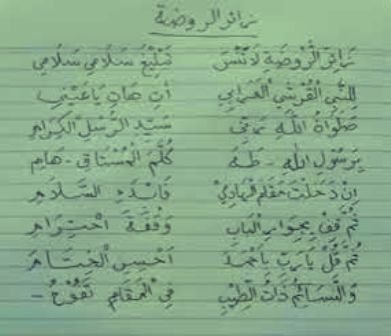 زائر الروضة
زَائِرَ الْرَّوْضَةِ لَا تَنْسَ تَبْلِيْغَ سَلَامِي سَلَامِي
لِلنَّبِي الْقُرَشِي
صَلَوَاةُ اللَّهِ سَيِّدِ الرُّسُلِ الْكِرَامِ
يَرَسُولَ اللهِ - طَهَ كُلَّمَ الْمُشْتَاقْ - هَامِ
اِنْ دَخَلْتَ مَقَامَ الْهَادِيْ فَابْدَءِ السَّلَامِ
ثُمَّ قِفْ الْبَابِ وَقْفَةَ احْتِرَامِ
ثُمَّ قُلْ يَارَبِّ أَحْسِنِ الْخِتَامِ
وَالنَّسَائِمُ ذَاتُ الطِّيْبِ فِي الْمَقَامِ تَفُوْحُ -